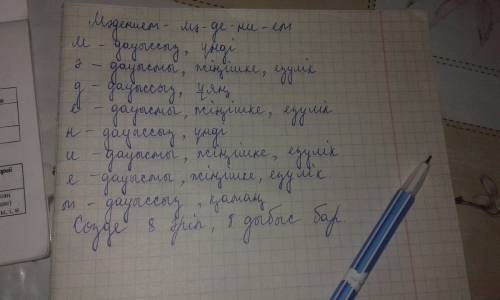 Мәдениет - мә-де-ни-ет
м - дауыссыз, үнді
ә - дауысты, жіңішке, езулік
д - дауыссыз, ұяң
е - дауысты, жіңішке, езулік
н - дауыссыз, үнді
и - дауысты, жіңішке, езулік
е - дауысты, жіңішке, езулік
т - дауыссыз, қатаң
Сөзде 8 әріп, 8 дыбыс бар